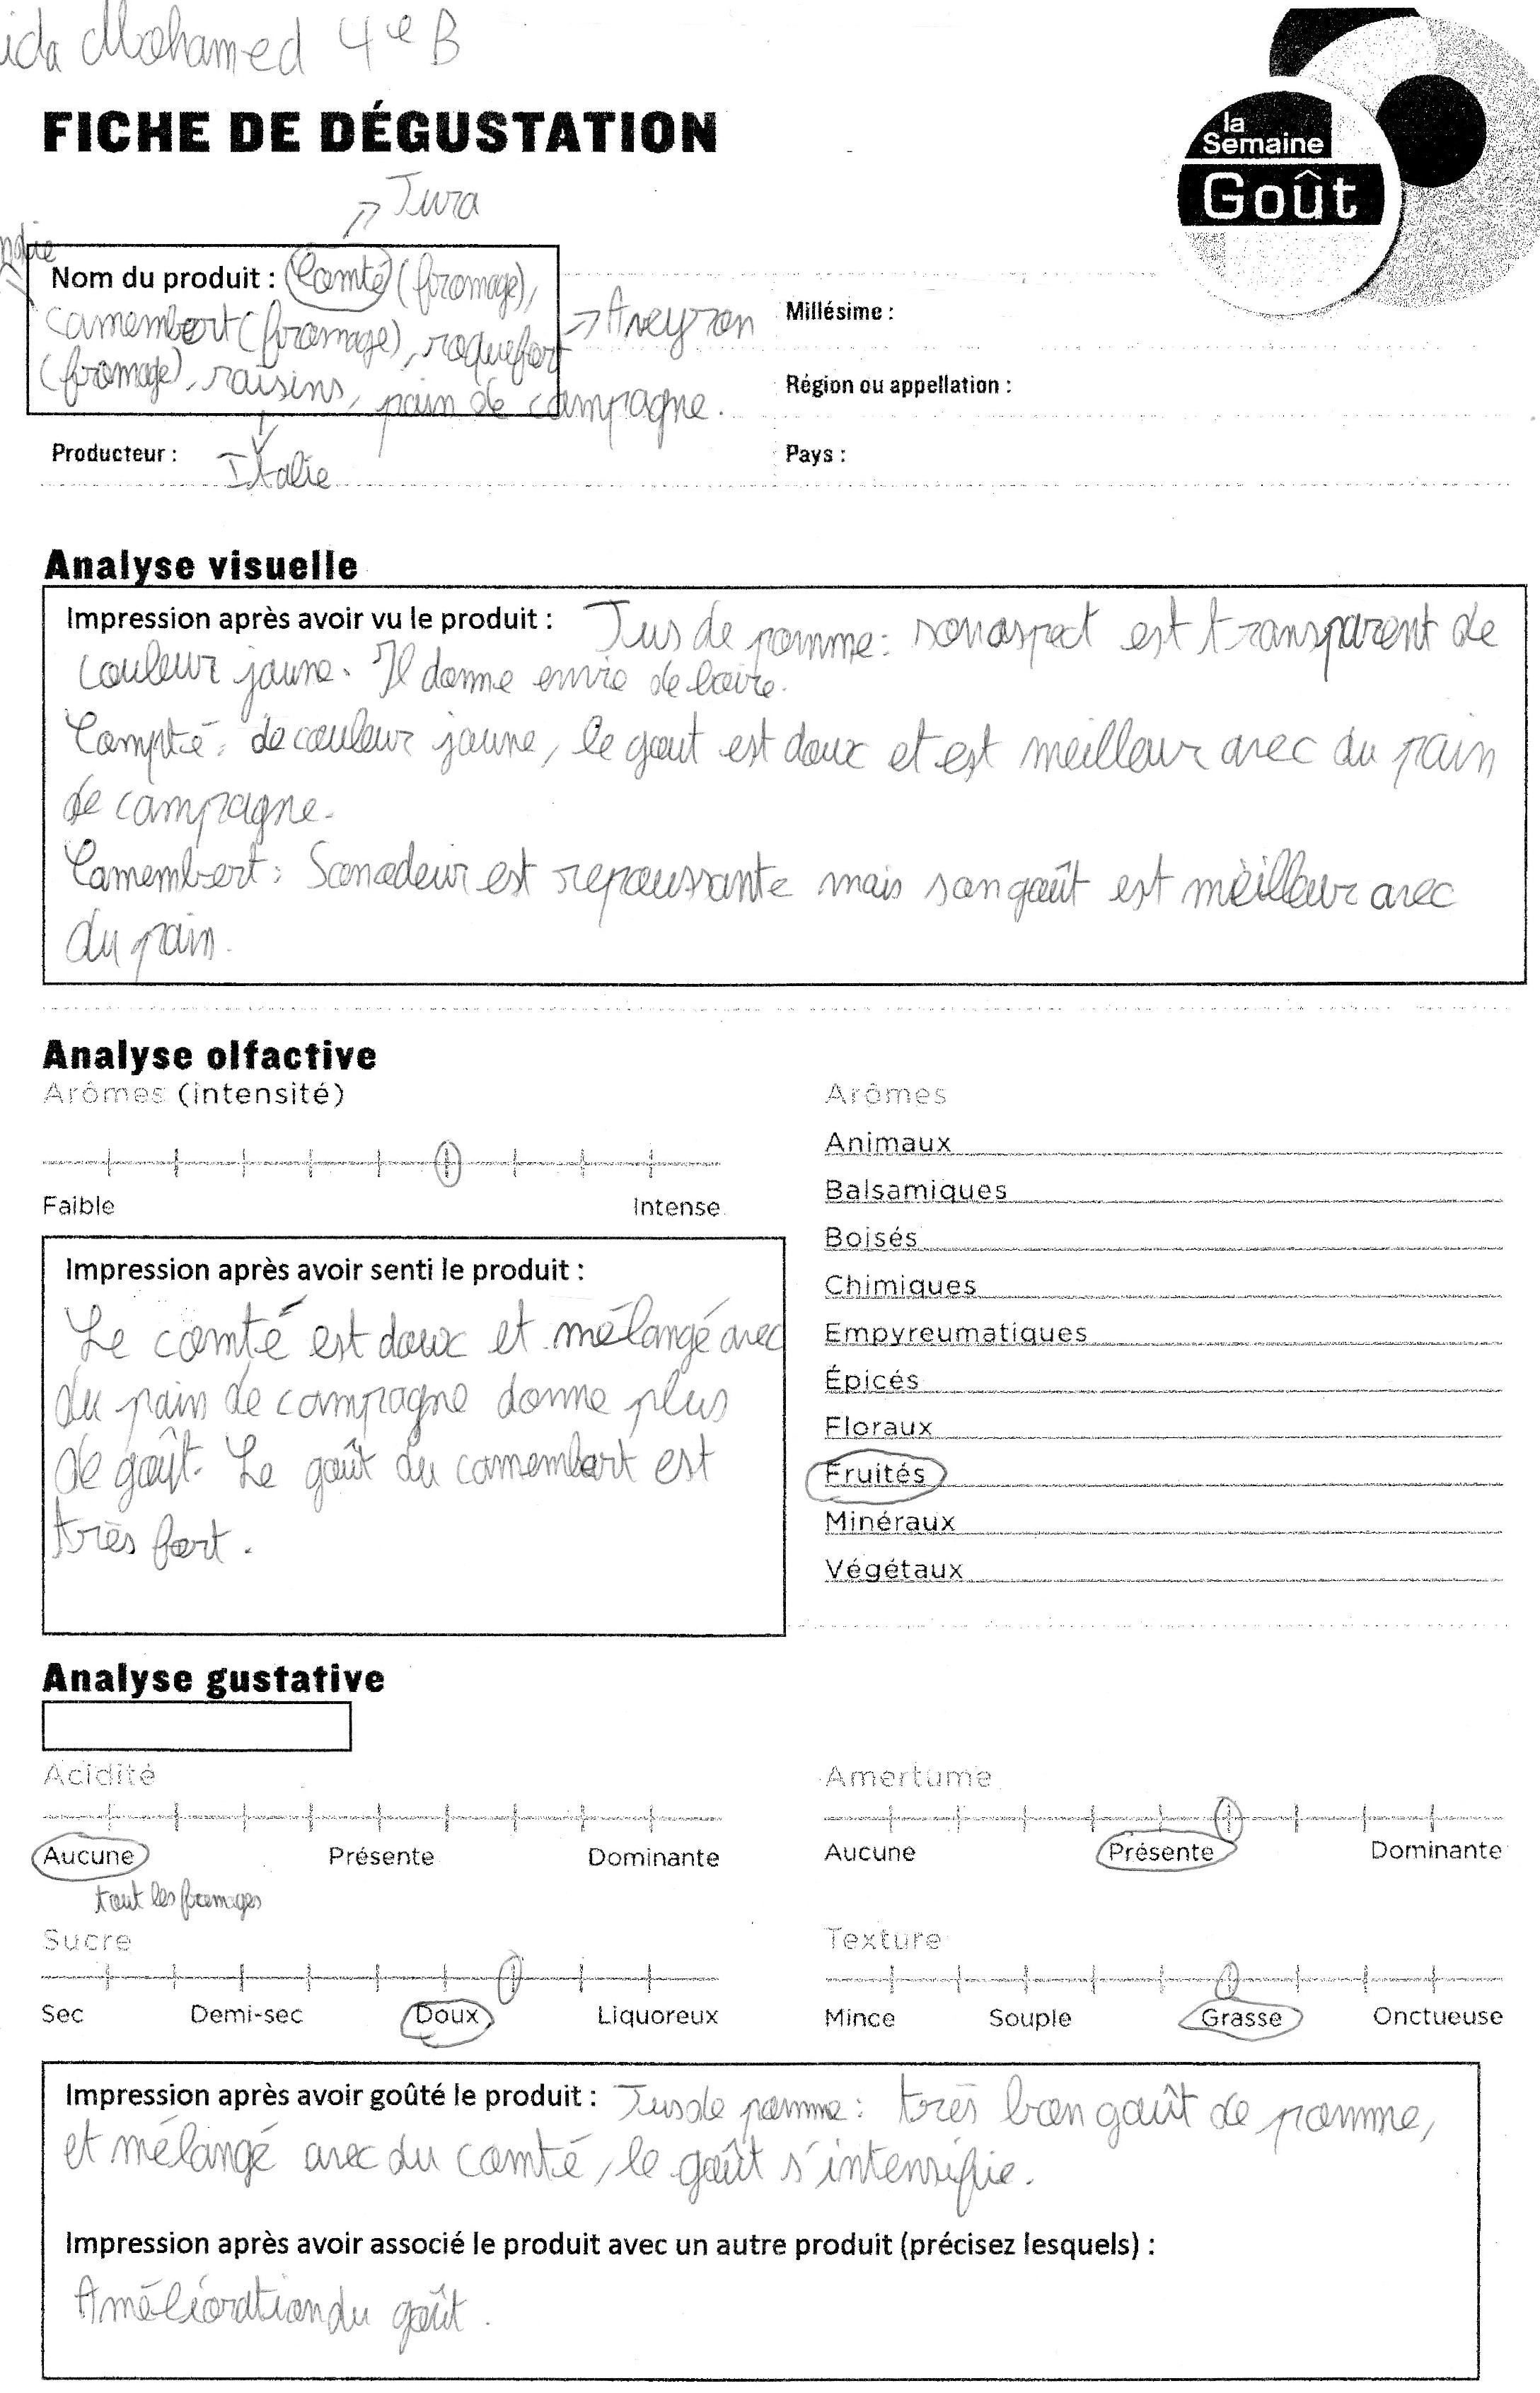 Mohamed 4e B
FICHE DE DÉGUSTATION
la
Semaine
Goût
Jura
Nom du produit : Comté (fromage),
camembert (fromage), roquefort
(fromage), raisins, pain de campagne.
Aveyron
Millésime :
Région ou appellation :
Producteur :
Italie
Pays :
Analyse visuelle
Impression après avoir vu le produit : Jus de pomme : son aspect est transparent de
couleur jaune. Il donne envie de boire.
Compté : de couleur jaune, le gout est doux et est meilleur avec du pain
de campagne.
Camembert : Son odeur est repoussante mais son goût est meilleur avec
du pain.
Analyse olfactive
Arômes (intensité)
Faible
Intense
Impression après avoir senti le produit :
Le comté est doux et mélangé avec
du pain de campagne donne plus
de goût. Le goût du camembert est
très fort.
Arômes
Animaux
Balsamiques
Boisés
Chimiques
Empyreumatiques
Épicés
Floraux
Fruités
Minéraux
Végétaux
Analyse gustative
Acidité
Aucune
Présente
Dominante
tout les fromages
Amertume
Aucune
Présente
Dominante
Sucre
Sec
Demi-sec
Doux
Liquoreux
Texture
Mince
Souple
Grasse
Onctueuse
Impression après avoir goûté le produit : Jus de pomme : très bon goût de pomme,
et mélangé avec du comté, le goût s'intensifie.
Impression après avoir associé le produit avec un autre produit (précisez lesquels) :
Amélioration du goût.